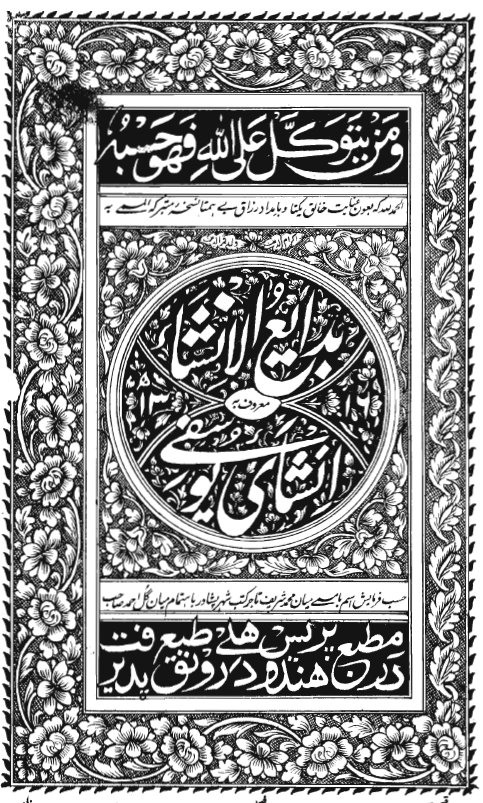 ومن یتوکل علی الله فهو حسبه
الحمد لله که بعون عنایت خالق یکتا و بامداد رزاق بے همتا نسخه متبرکه المسمے به
بدایع الانشاء
معروف به
۱۳۱۶ھ
انشای یوسفی
حسب فرمایش اسم بامسمے میان محمد شریف تاجر کتب شهر پشاور باهتمام میان گل احمد صاحب
مطبع پریس هلے طبع فت
دین هندو رونق پذیر